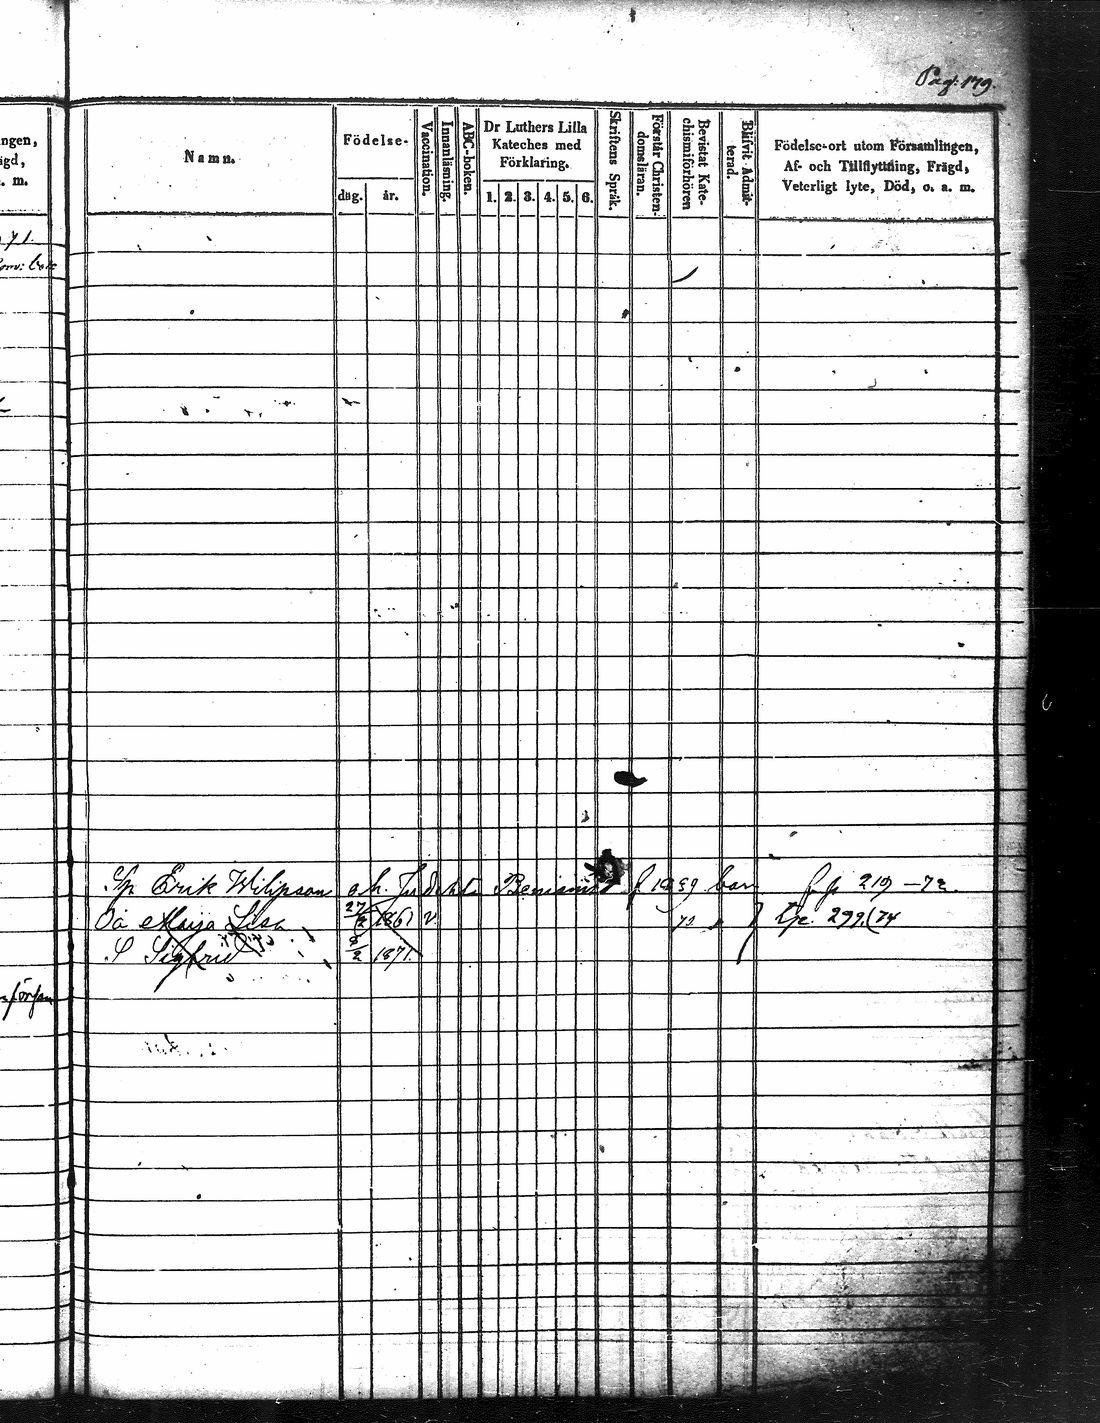 Pag. 179.
ngen,
igd,
. m.
Namn.
Födelse-
dag.
år.
Vaccination.
Innanläsning.
ABC-boken.
Dr Luthers Lilla
Kateches med
Förklaring.
1. 2. 3. 4. 5. 6.
Skriftens Språk.
Förstår Christen-
domsläran.
Bevistat Kate-
chismiförhören
Blifvit Admit-
terad.
Födelse-ort utom Församlingen,
Af- och Tillflyttning, Frägd,
Veterligt lyte, Död, o. a. m.
71.
Erik Wilipson o h. f 1839 barn f p 219 – 72.
Maja Lisa 27/2 1861 v. 72 299. 74
S Sigfrid 9/2 1871.